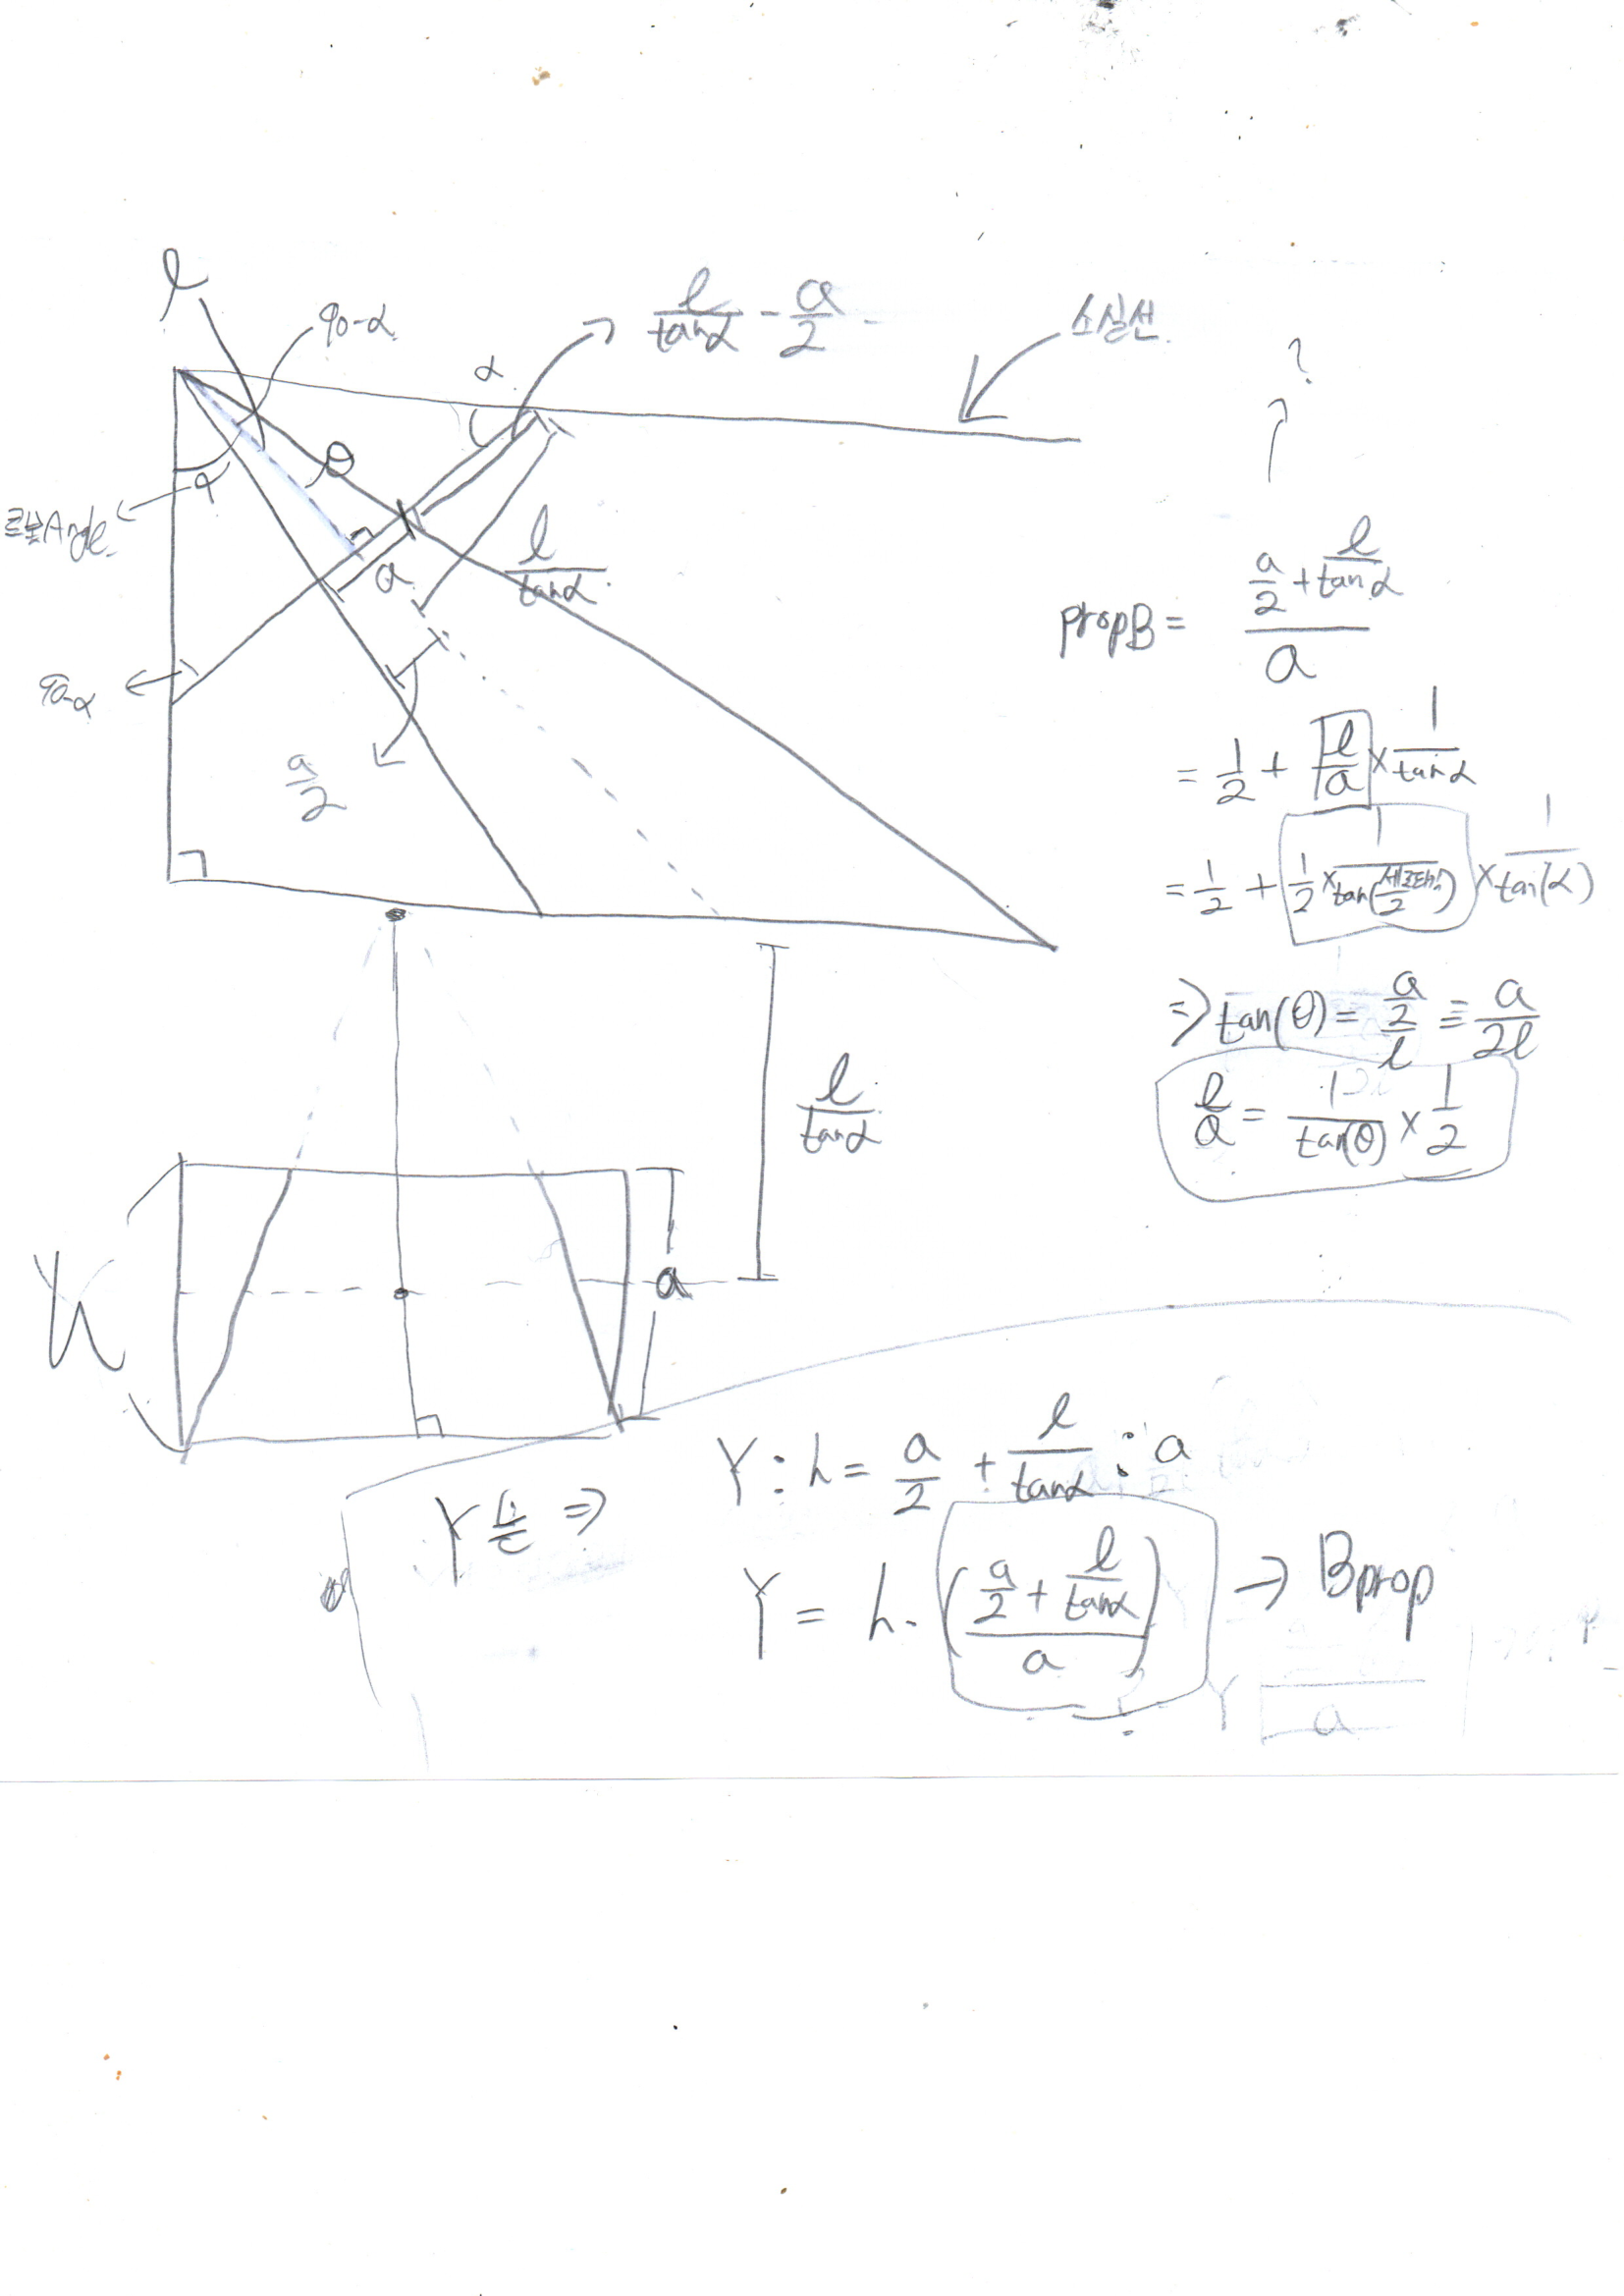 l
90-α
l/tanα - a/2
소실선
α
?
θ
α
로봇Angle
a
l/tanα
90-α
a/2
propB = (a/2 + l/tanα)/a
= 1/2 + l/a × 1/tanα
= 1/2 + 1/2 × 1/tan(세로화각/2) × 1/tan(α)
⇒ tan(θ) = (a/2)/l = a/2l
l/a = 1/tan(θ) × 1/2
l/tanα
h
a
Y : h = a/2 + l/tanα : a
Y는 ⇒
Y = h · ((a/2 + l/tanα)/a) → Bprop
Y
a